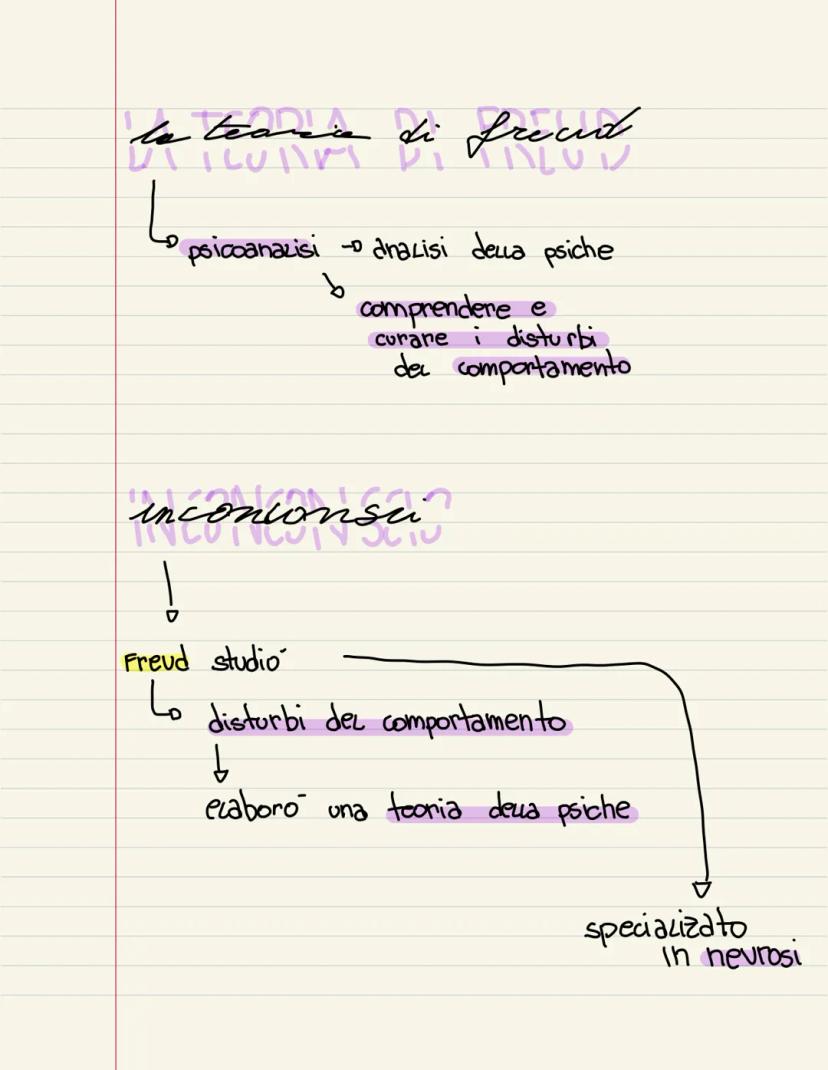 la teoria di freud
psicoanalisi → analisi della psiche
comprendere e
curare i disturbi
del comportamento
inconscio
Freud studiò
disturbi del comportamento
elaborò una teoria della psiche
specializzato
in nevrosi